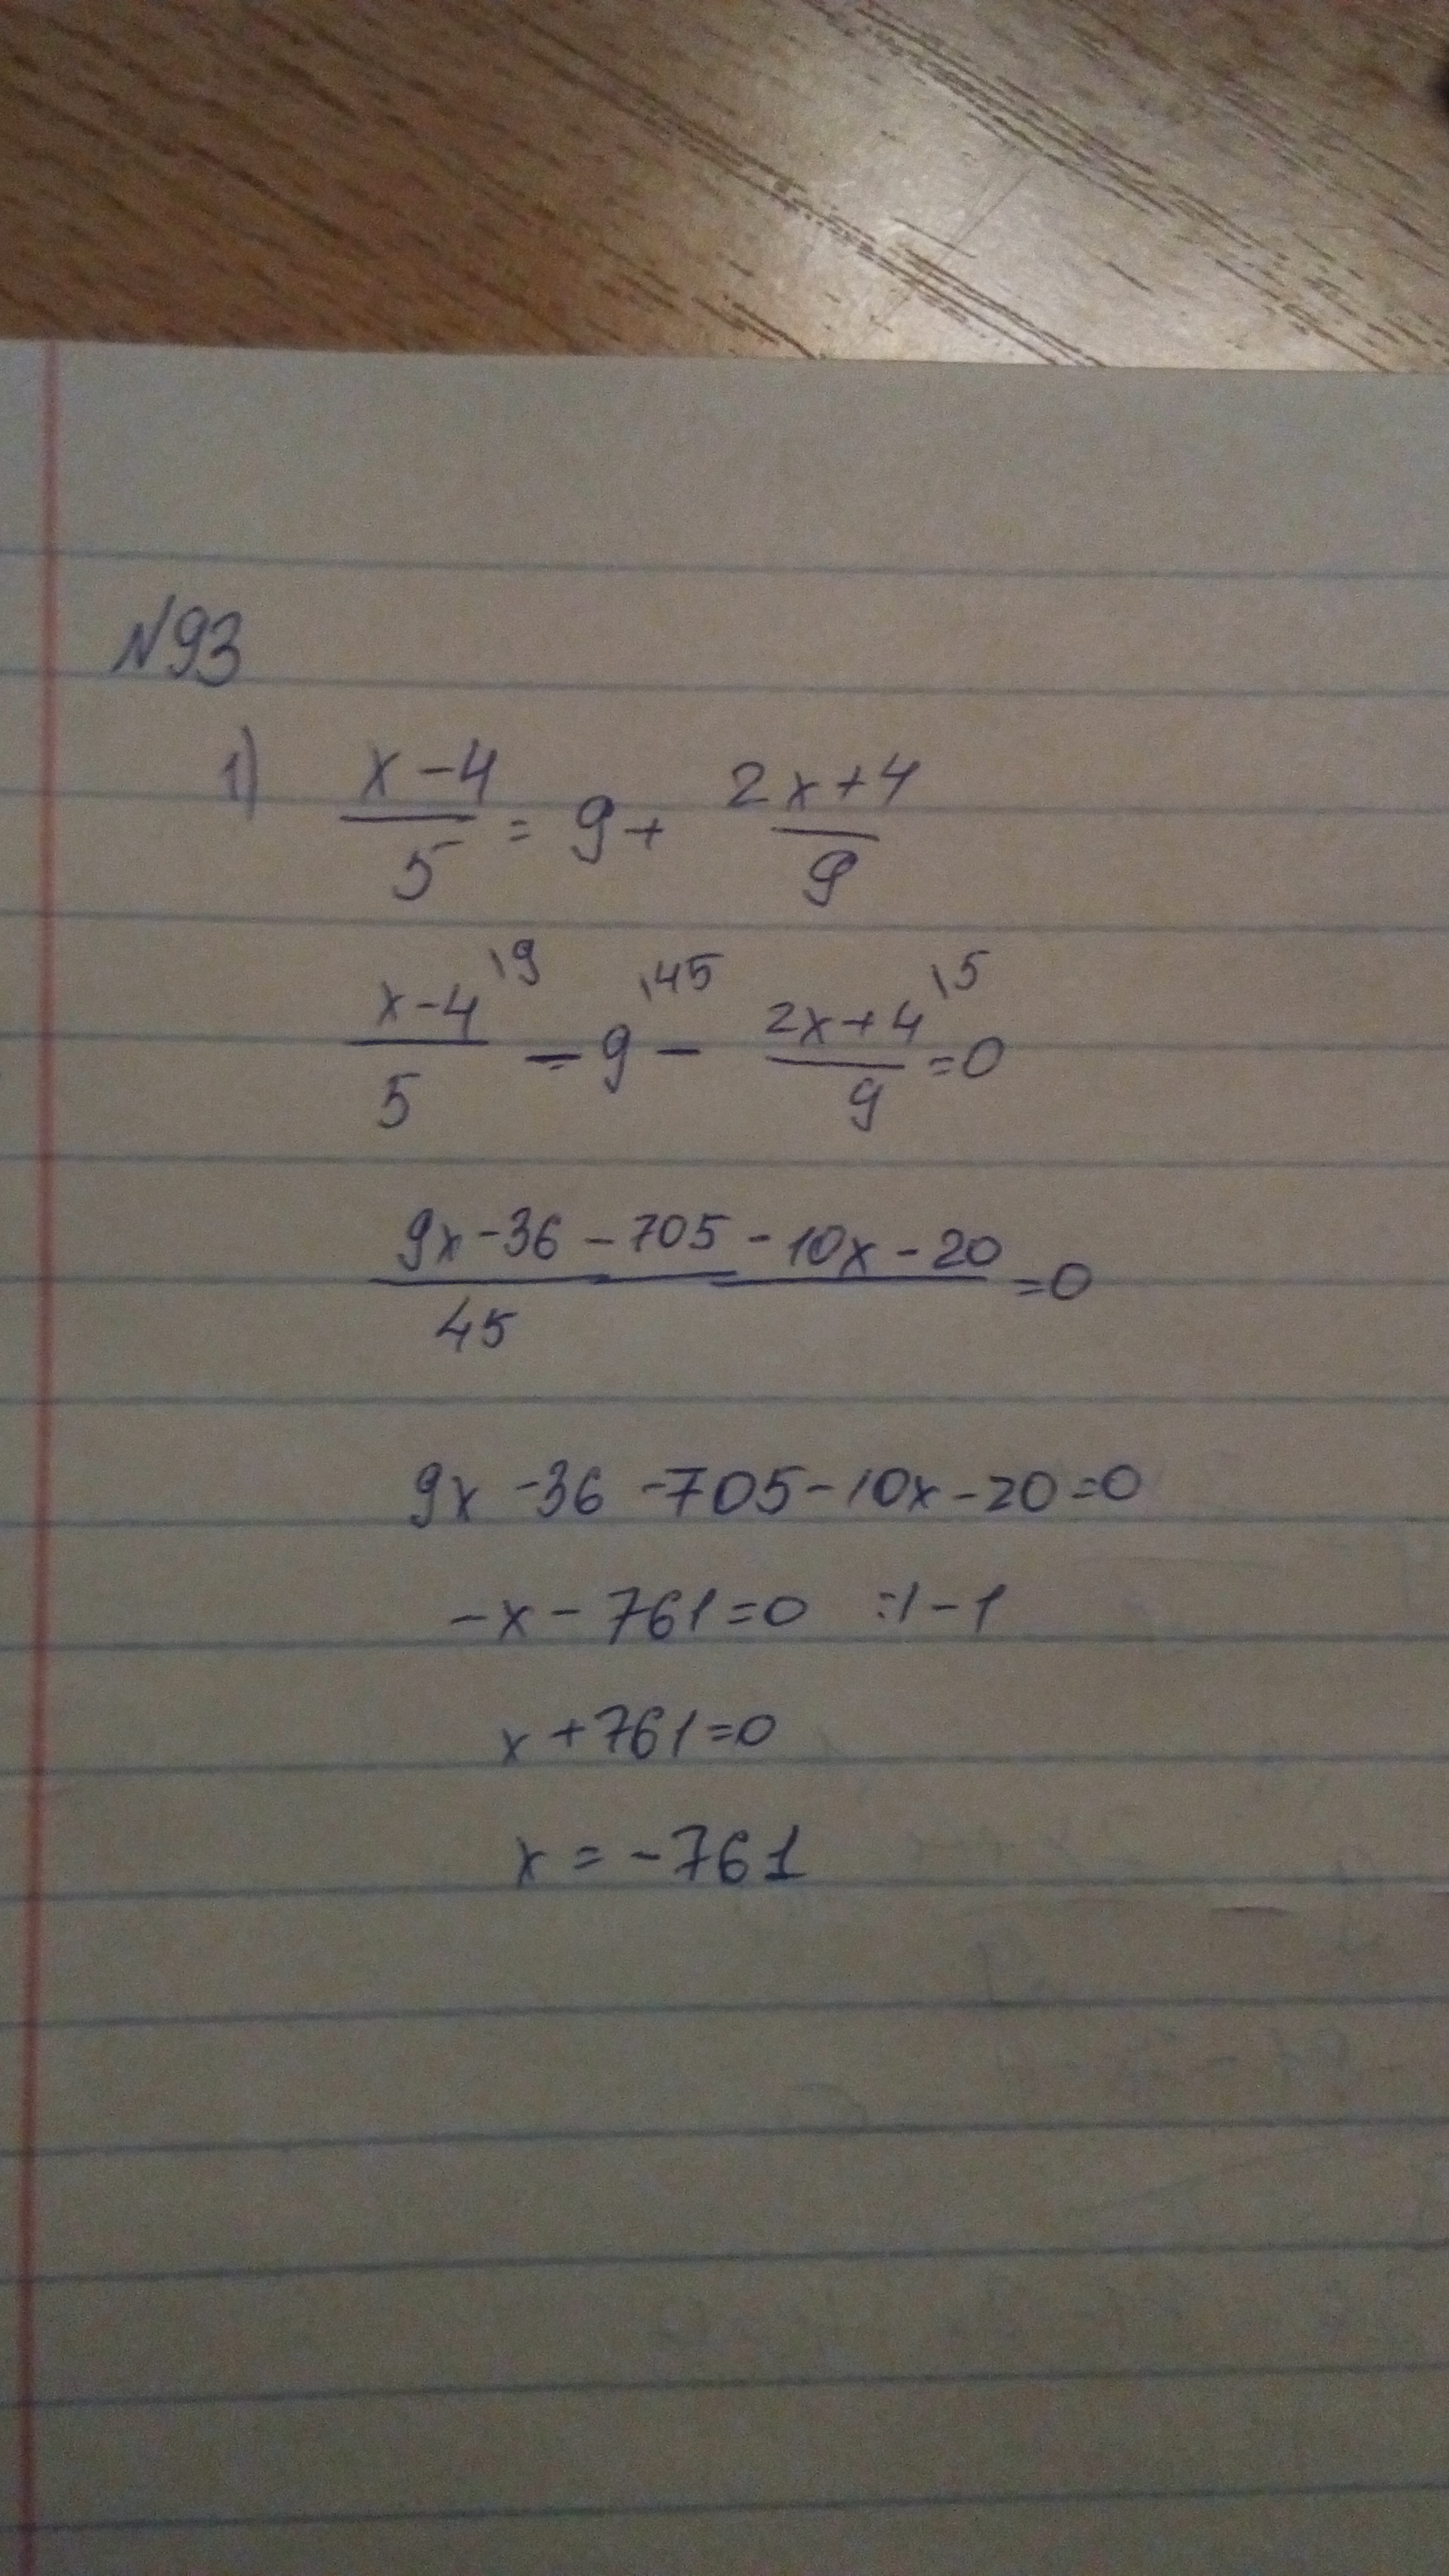 N93
1) x-4/5 = 9 + 2x+4/9
x-4/5 \9 - 9 \45 - 2x+4/9 \5 =0
9x-36-705-10x-20/45 =0
9x-36-705-10x-20=0
-x-761=0 :|-1
x+761=0
x=-761